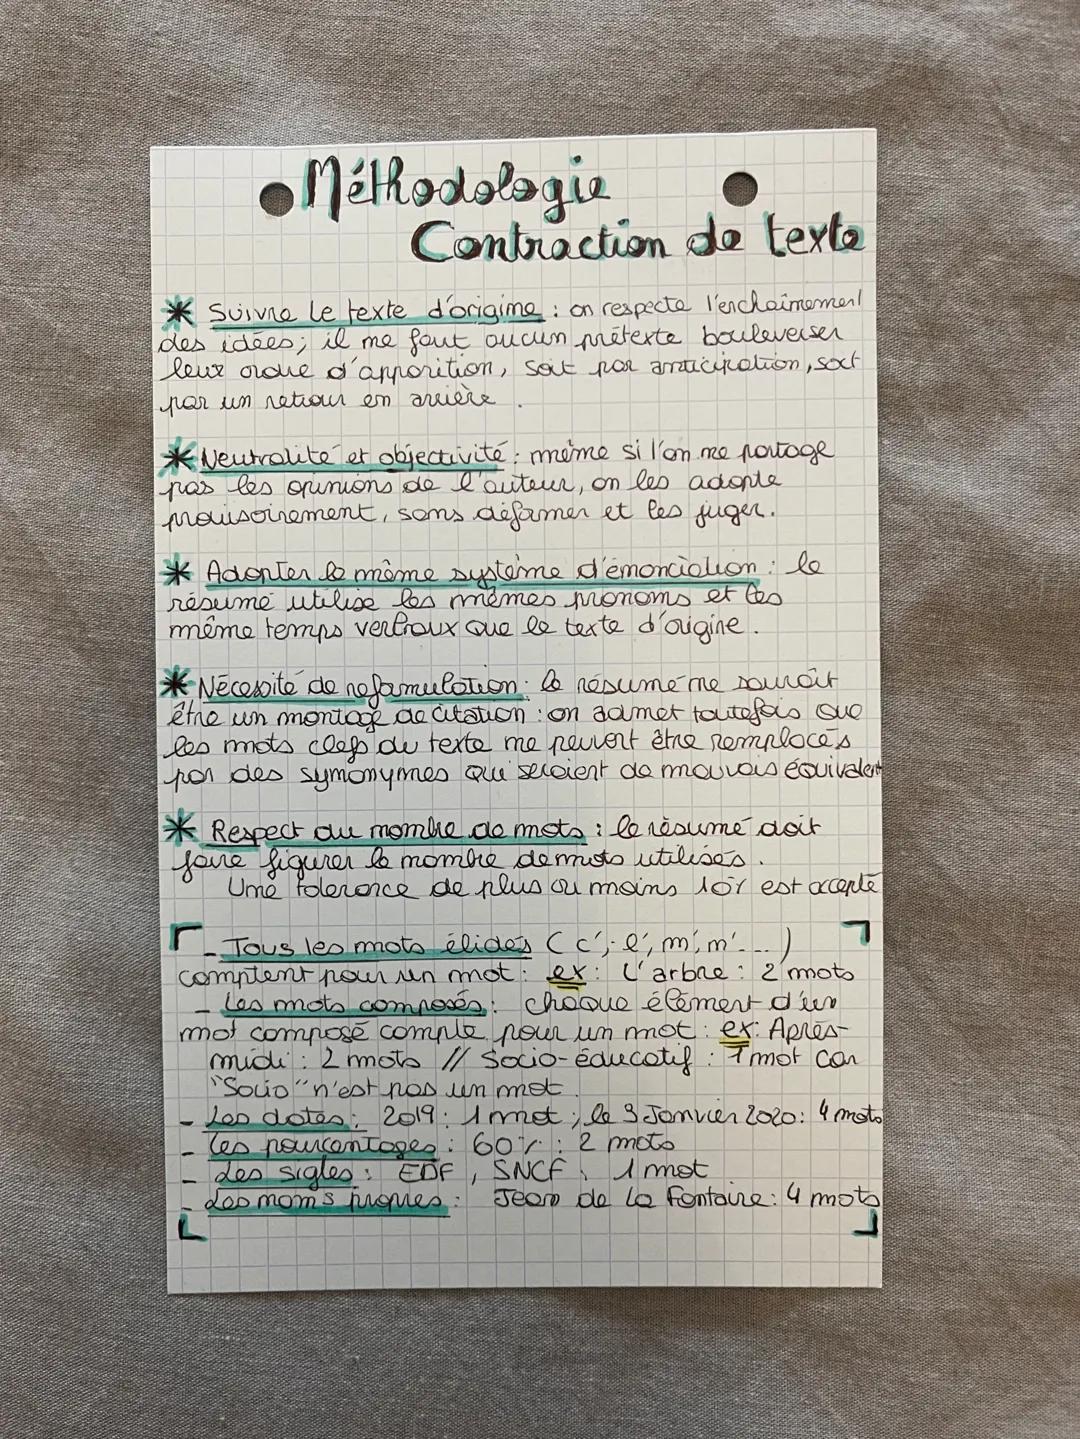 Méthodologie
Contraction de texte
* Suivre le texte d'origine : on respecte l'enchaînement
des idées; il ne faut aucun prétexte bouleverser
leur ordre d'apparition, soit par anticipation, soit
par un retour en arrière.
* Neutralité et objectivité : même si l'on ne partage
pas les opinions de l'auteur, on les adopte
provisoirement, sans déformer et les juger.
* Adopter le même système d'énonciation : le
résumé utilise les mêmes pronoms et les
même temps verbaux que le texte d'origine.
* Nécessité de reformulation : le résumé ne saurait
être un montage de citation : on admet toutefois que
les mots clefs du texte ne peuvent être remplacés
par des synonymes qui seraient de mauvais équivalent
* Respect du nombre de mots : le résumé doit
faire figurer le nombre de mots utilisés.
Une tolerance de plus ou moins 10% est accepté
- Tous les mots élidés (c', l', m', n'...)
comptent pour un mot : ex : L'arbre : 2 mots
- Les mots composés : chaque élément d'un
mot composé compte pour un mot : ex : Après-
midi : 2 mots // Socio-éducatif : 1 mot car
"Socio" n'est pas un mot.
- Les dates : 2019 : 1 mot ; le 3 Janvier 2020 : 4 mots
- Les pourcentages : 60% : 2 mots
- Les sigles : EDF, SNCF : 1 mot
- Les noms propres : Jean de La Fontaine : 4 mots